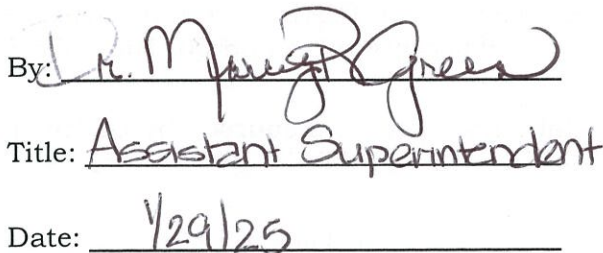 By: Dr. Green
Title: Assistant Superintendent
Date: 1/29/25